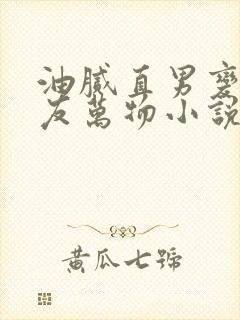 油膩直男變
友萬物小說
黃瓜七號